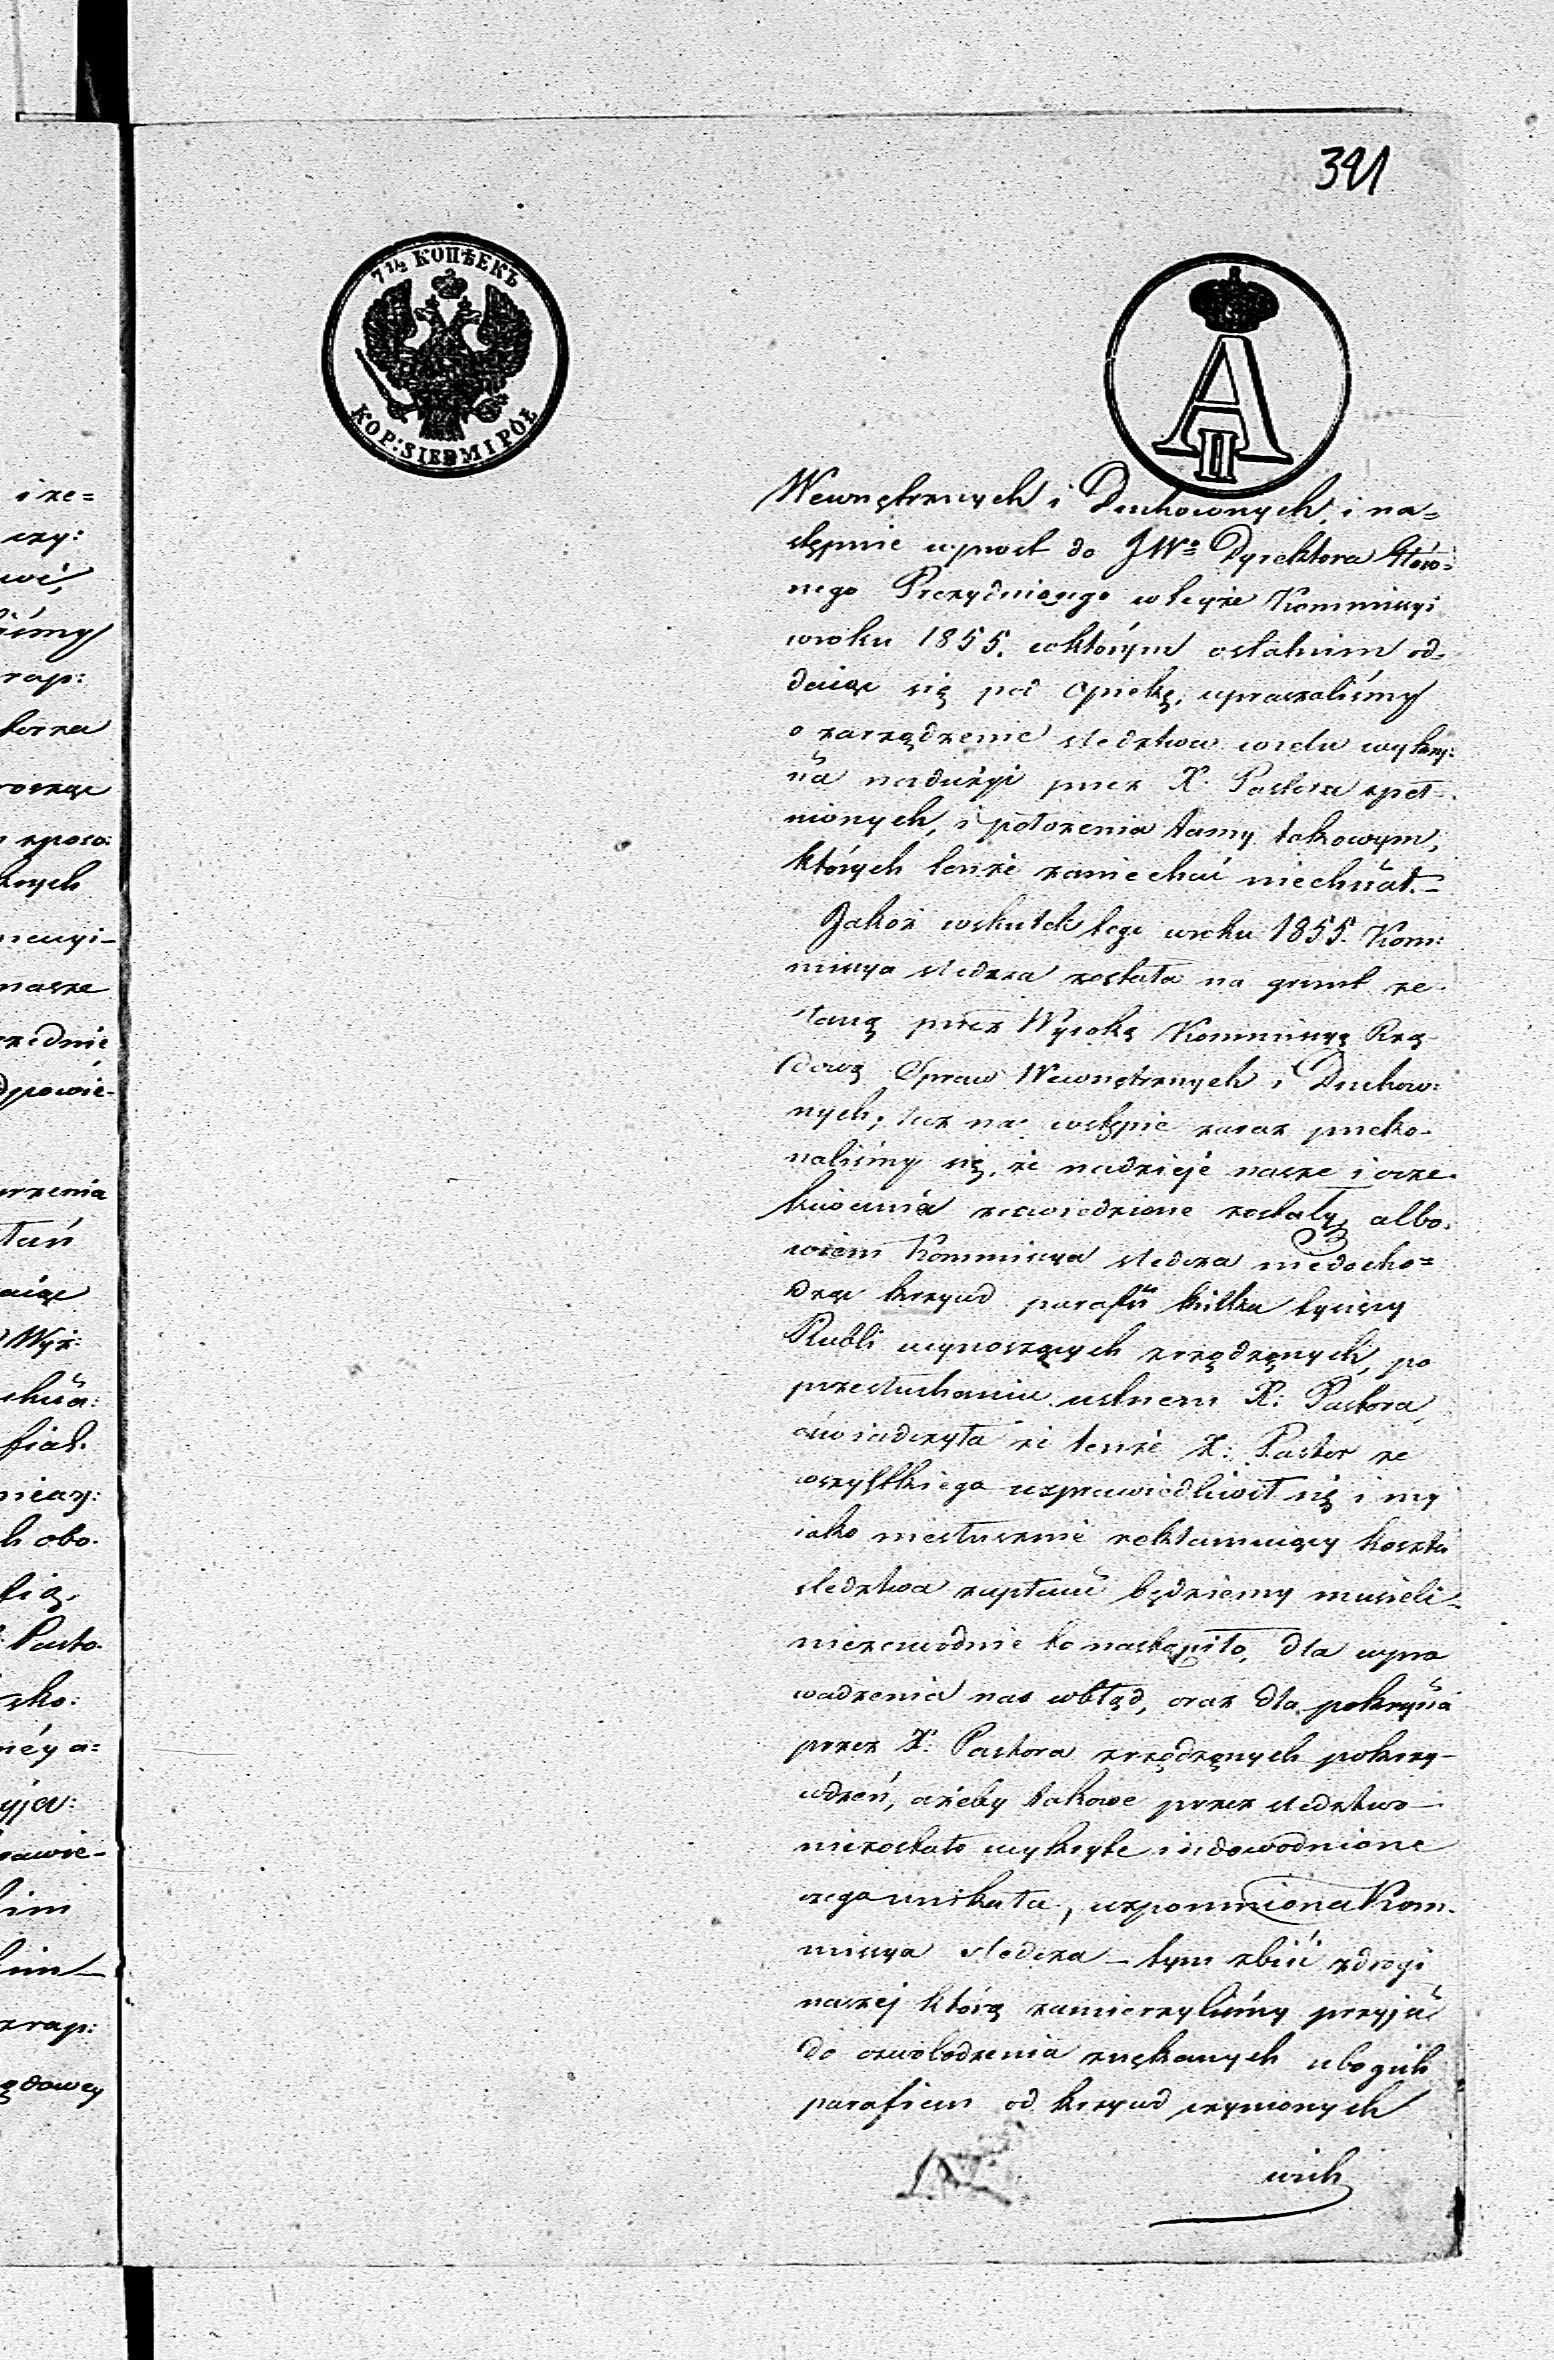 391
7 ½ КОПѢЕКЪ
KOP: SIEDM I PÓŁ
A
II
i ze=
czy:
wé,
liśmy
rap:
torza
naszе
zednie
dpowie-
tań
Wyż:
fial.
h obo-
Pasto-
sko:
néy a=
awie-
kim
zrap:
ądowey
Wewnętrznych i Duchownych, i na=
stępnie wprost do JWo Dyrektora Głów=
nego Prezyduiącego wteyże Kommissyi
wroku 1855. wktórym ostatnim od=
daiąc się pod opiekę, upraszaliśmy
o zarządzenie śledztwa wcelu wykry:
cia nadużyć przez X. Pastora speł-
nionych, i położenia tamy takowym,
których tenże zaniechać niechciał. –
Jakoż wskutek tego wroku 1855. Kom:
missya śledcza zesłała na grunt ze-
słaną przez Wysoką Kommissyę Rzą-
dową Spraw Wewnętrznych i Duchow:
nych, lecz na wstępie zaraz przeko-
naliśmy się, że nadzieje nasze i ocze-
kiwania zawiedzione zostały, albo-
wiem Kommissya śledcza niedocho=
dząc krzywd parafii kilka tysięcy
Rubli wynoszących zrządzonych, po
przesłuchaniu ustnem X: Pastora,
oświadczyła że tenże X: Pastor ze
wszystkiego usprawiedliwił się i my
iako niesłusznie reklamuiący koszta
śledztwa zapłacić będziemy musieli –
niezawodnie to nastąpiło, dla wpro
wadzenia nas wbłąd, oraz dla pokrycia
przez X. Pastora zrządzonych pokrzy-
wdzeń, ażeby takowe przez śledztwo –
niezostało wykryte i udowodnione
czego unikała, wspomniona Kom-
missya śledcza – tym zbić zdrogi
naszej którą zamierzyliśmy przyjąć
do oswobodzenia znękanych ubogich
parafian od krzywd czynionych
wich